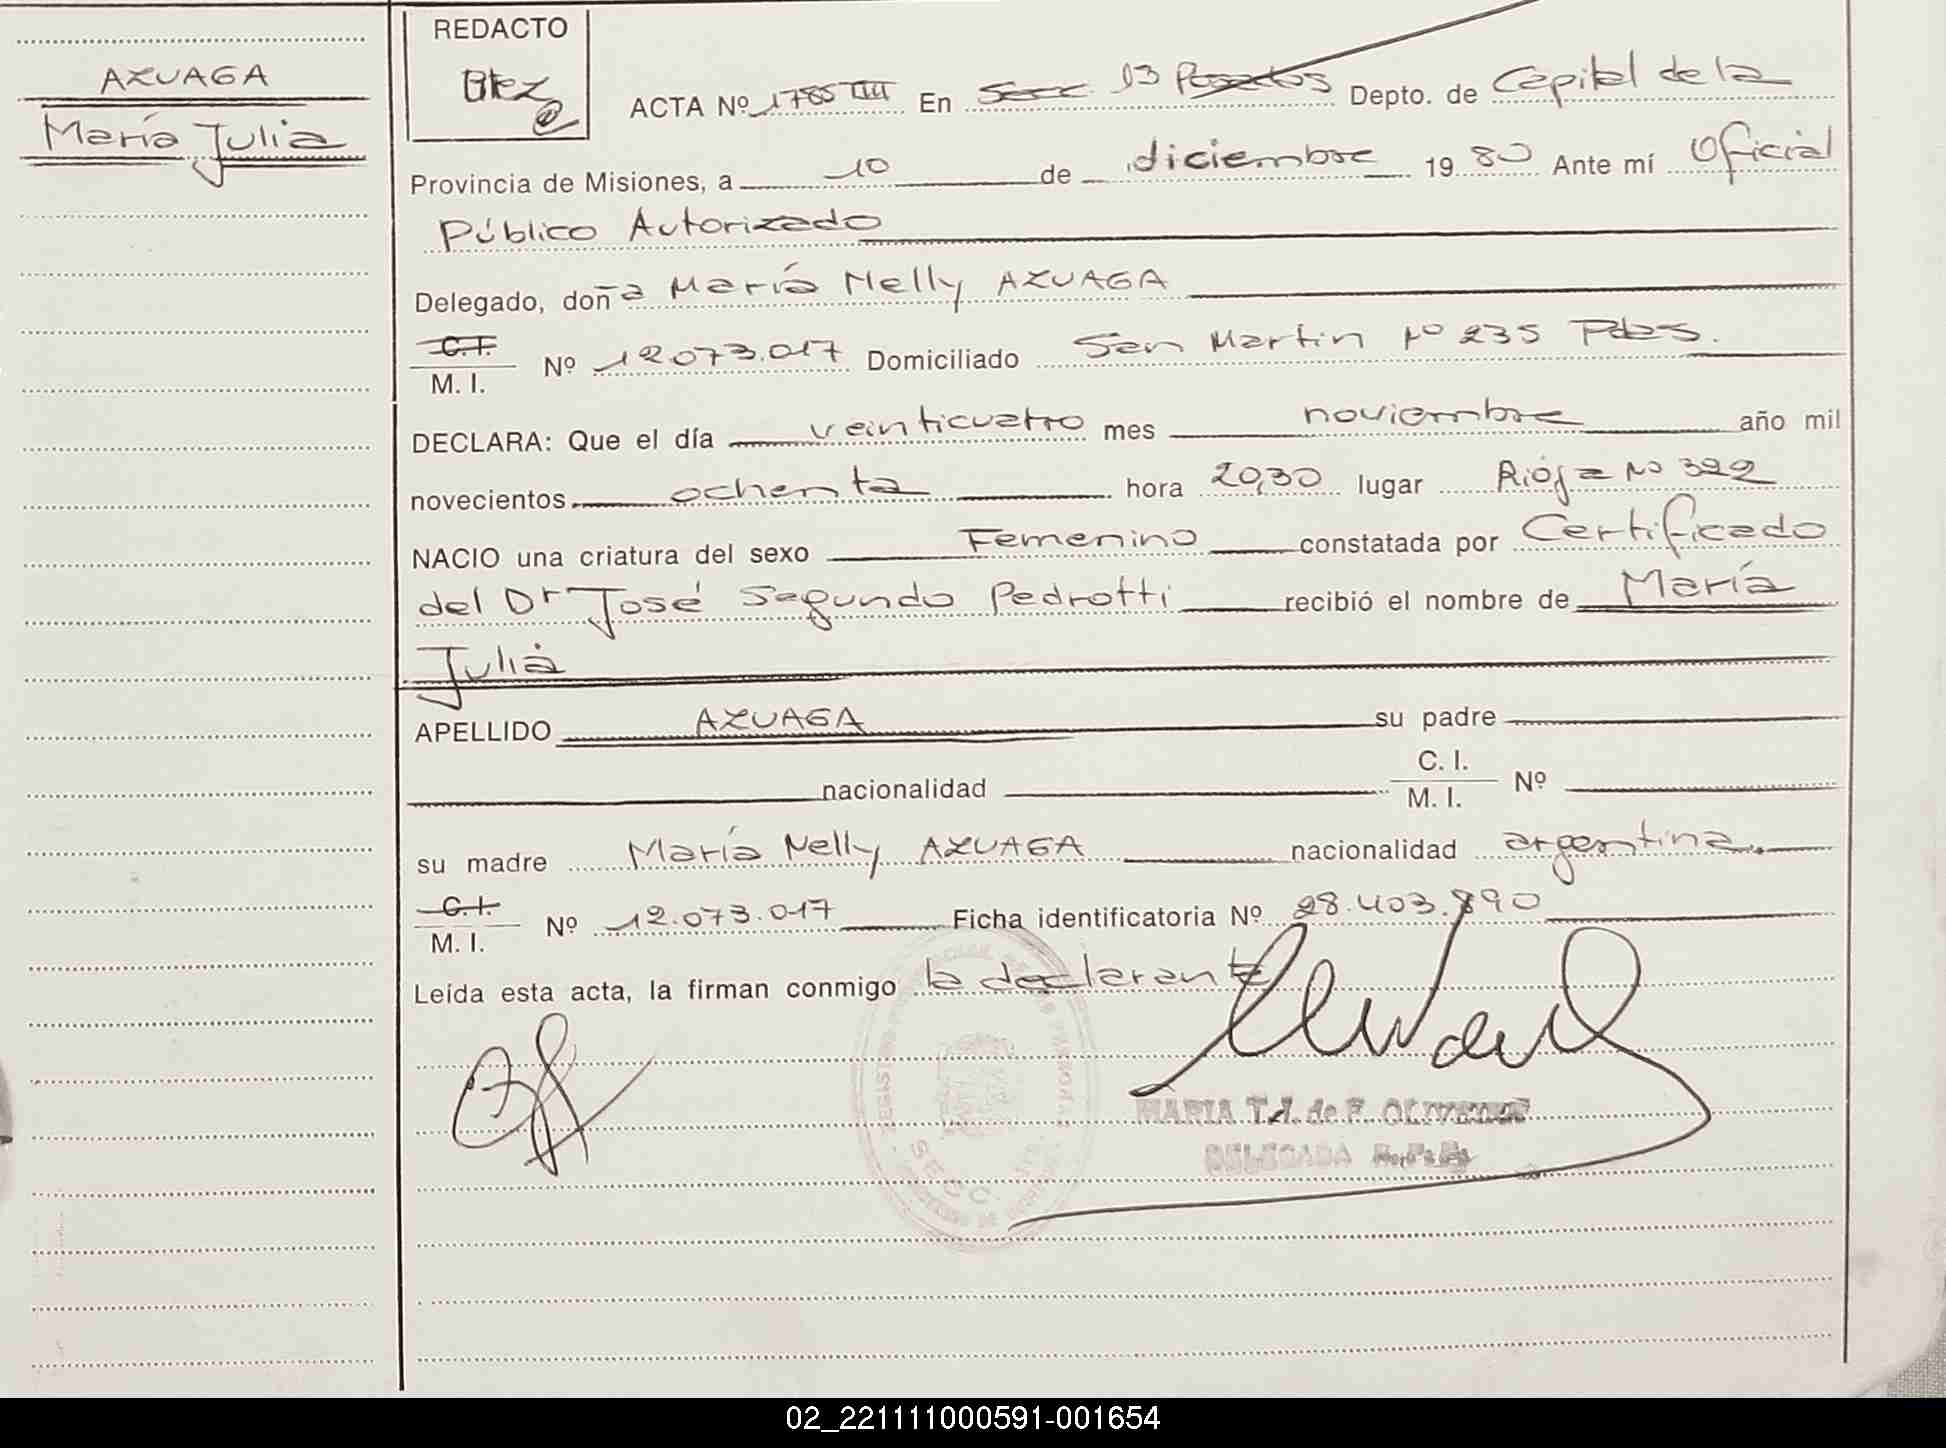 AZUAGA
María Julia
REDACTO
Btez
ACTA Nº 1785 TIII En Secc 13 Posadas Depto. de Capital de la
Provincia de Misiones, a 10 de diciembre 1980 Ante mí Oficial
Público Autorizado
Delegado, doña María Nelly AZUAGA
C.I.
M. I. Nº 12.073.017 Domiciliado San Martin Nº 235 Pdas.
DECLARA: Que el día veinticuatro mes noviembre año mil
novecientos ochenta hora 20,30 lugar Rioja Nº 392
NACIO una criatura del sexo Femenino constatada por Certificado
del Dr José Segundo Pedrotti recibió el nombre de María
Julia
APELLIDO AZUAGA su padre
nacionalidad C. I.
M. I. Nº
su madre María Nelly AZUAGA nacionalidad argentina.
C.I.
M. I. Nº 12.073.017 Ficha identificatoria Nº 28.403.890
Leída esta acta, la firman conmigo la declarante
MARIA T. de F.
DELEGADA
SECC.
02_221111000591-001654